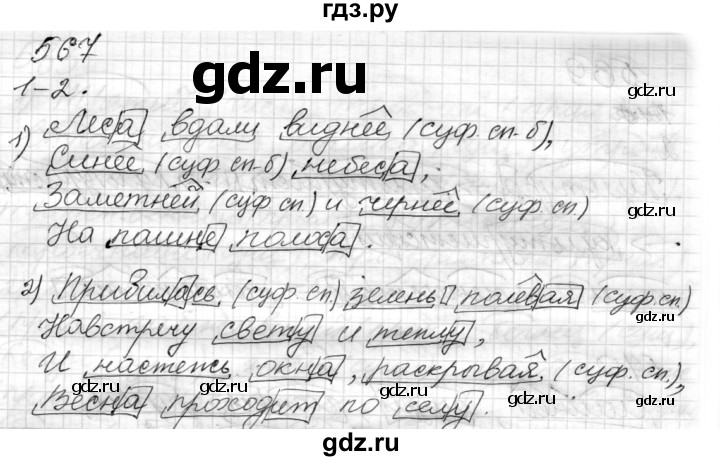 гдз.ру
567
gdz.ru
1-2.
gdz.ru
1) Леса вдали виднее (суф. сп-б),
Синее (суф сп-б), небеса,
gdz.ru
Заметней (суф сп.) и чернее (суф. сп.)
gdz.ru
На пашне полоса.
gdz.ru
2) Привилась (суф. сп.) зелень полевая (суф. сп)
Навстречу свету и теплу,
gdz.ru
И настежь окна, раскрывая (суф. сп.),
gdz.ru
gdz.ru
gdz.ru
Весна проходит по селу.
gdz.ru